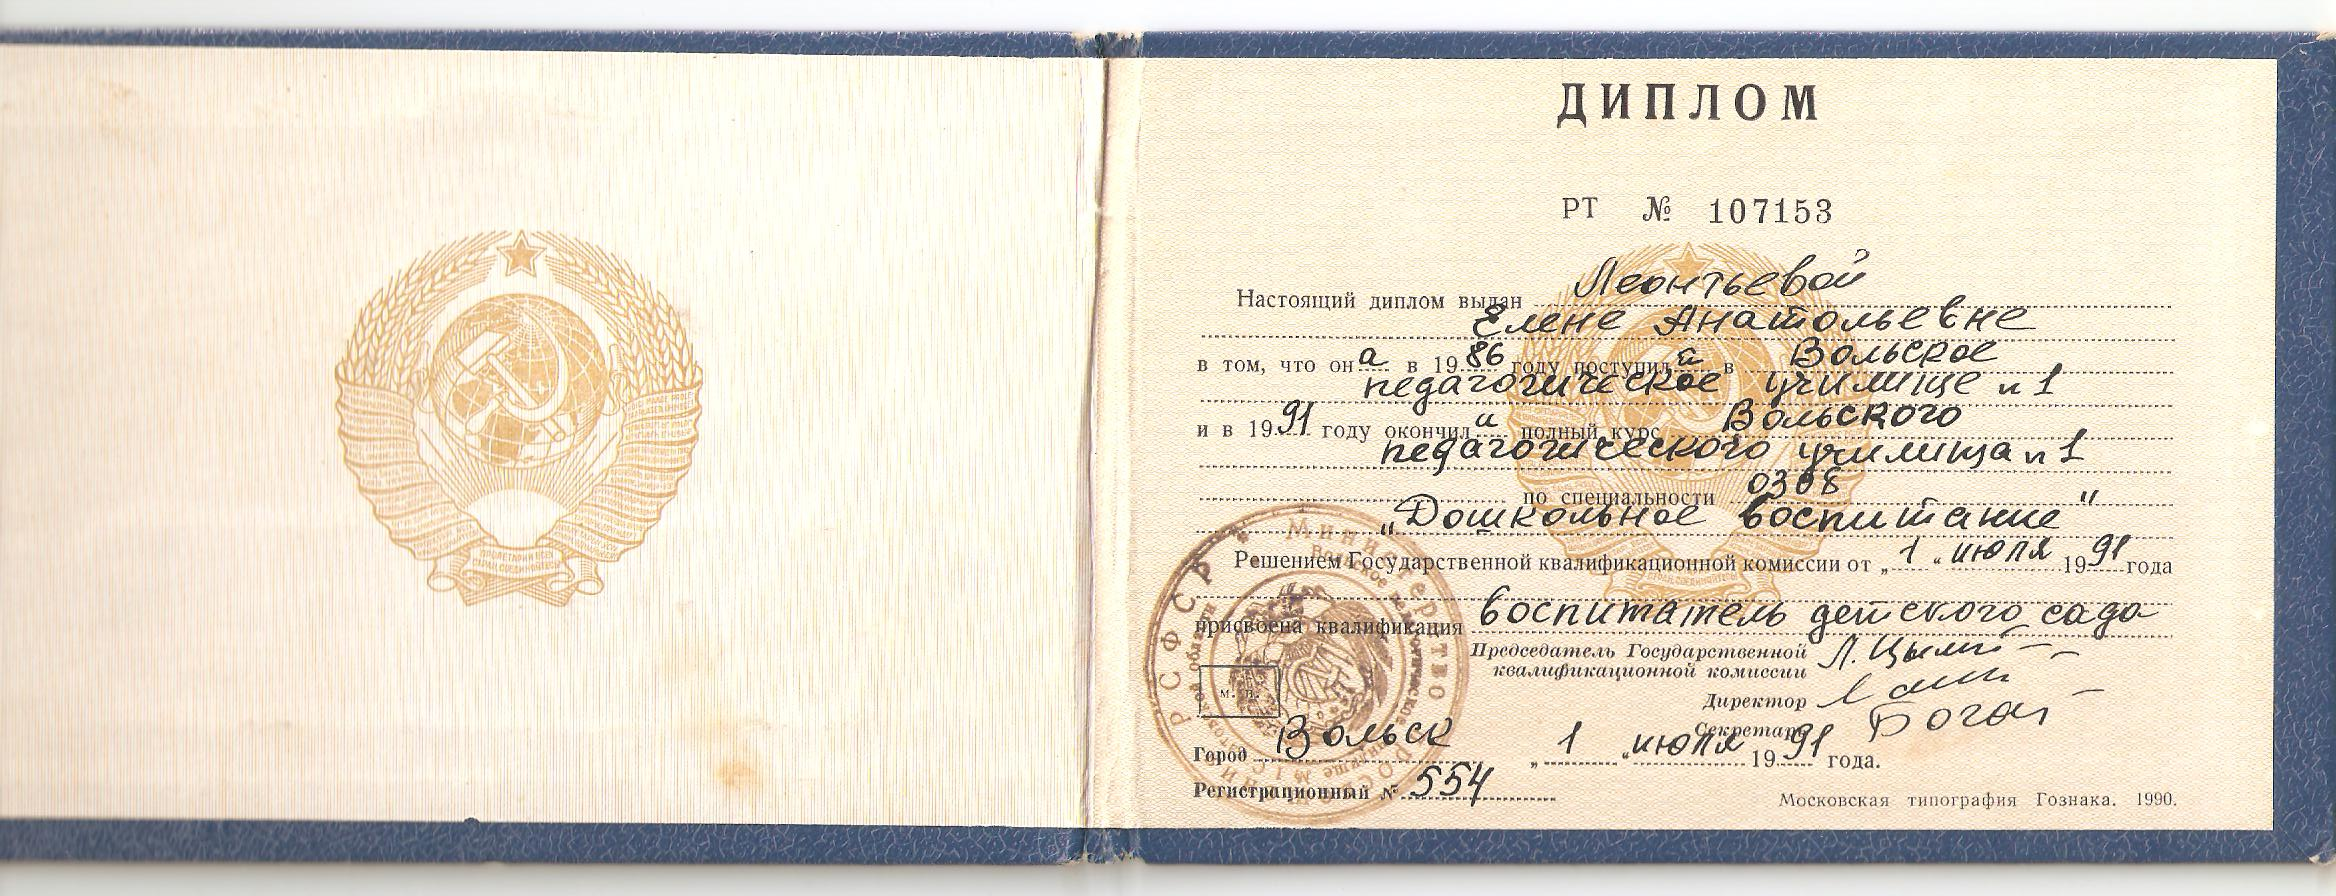 ДИПЛОМ
РТ № 107153
Настоящий диплом выдан Леонтьевой
Елене Анатольевне
в том, что она в 1986 году поступила в Вольское
педагогическое училище n 1
и в 1991 году окончила полный курс Вольского
педагогического училища n 1
по специальности 0308
„Дошкольное воспитание"
Решением Государственной квалификационной комиссии от „1" июля 1991 года
присвоена квалификация воспитатель детского сада
Председатель Государственной
квалификационной комиссии
Директор
Секретарь
М. П.
Город Вольск „1" июля 1991 года.
Регистрационный № 554
Московская типография Гознака. 1990.
РСФСР
Министерство